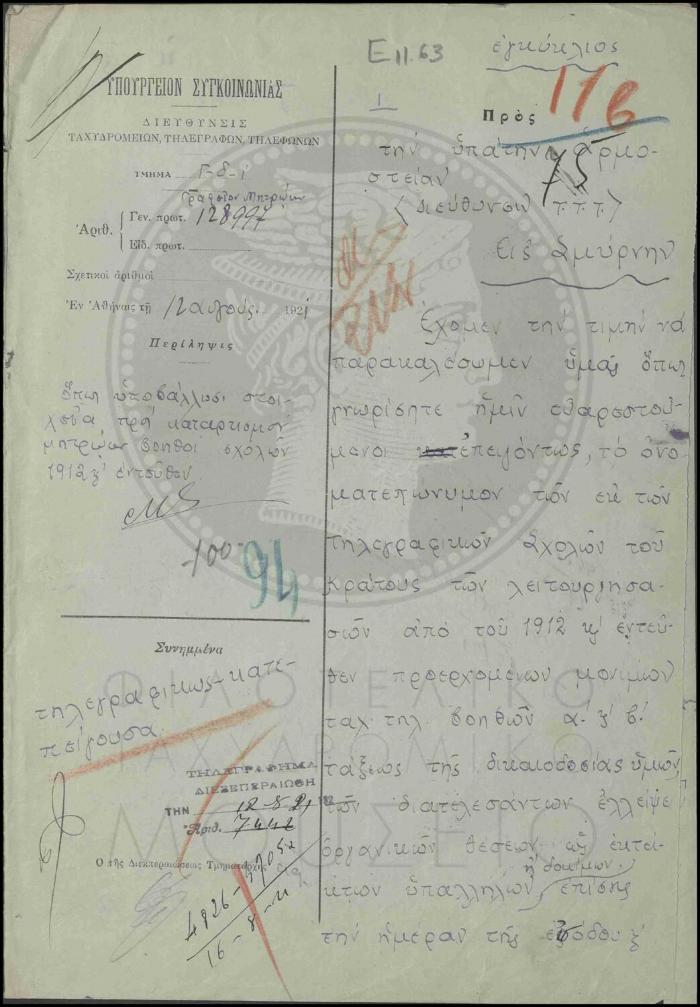 Ε 11.63
ἐγκύκλιος
ΥΠΟΥΡΓΕΙΟΝ ΣΥΓΚΟΙΝΩΝΙΑΣ
ΔΙΕΥΘΥΝΣΙΣ
ΤΑΧΥΔΡΟΜΕΙΩΝ, ΤΗΛΕΓΡΑΦΩΝ, ΤΗΛΕΦΩΝΩΝ
ΤΜΗΜΑ Γ-δ-ι
Γραφεῖον Μητρώων
Ἀριθ. Γεν. πρωτ. 128997
Εἰδ. πρωτ.
Σχετικοὶ ἀριθμοὶ
Ἐν Ἀθήναις τῇ 12 αυγούς. 1921
Περίληψις
ὅπως ὑποβάλλωσι στοι-
χεῖα πρὸς καταρτισμὸν
μητρώων βοηθοὶ σχολῶν
1912 κ' ἐντεῦθεν
-100-
94
Συνημμένα
τηλεγραφικῶς-κατε-
πείγουσα
ΤΗΛΕΓΡΑΦΗΜΑ
ΔΙΕΞΕΠΕΡΑΙΩΘΗ
ΤΗΝ 12-8-21 192
Ἀριθ. 7442
Ὁ τῆς Διεκπεραιώσεως Τμηματάρχης
4826
16-8-21
Πρὸς
116
75
τὴν ὑπάτην ἁρμο-
στείαν
(Διεύθυνσιν Τ.Τ.Τ)
Εἰς Σμύρνην
Ἔχομεν τὴν τιμὴν νὰ
παρακαλέσωμεν ὑμᾶς ὅπως
γνωρίσητε ἡμῖν εὐαρεστού-
μενοι ἐπειγόντως, τὸ ὀνο-
ματεπώνυμον τῶν ἐκ τῶν
Τηλεγραφικῶν Σχολῶν τοῦ
Κράτους τῶν λειτουργησα-
σῶν ἀπὸ τοῦ 1912 κ' ἐντεῦ-
θεν προερχομένων μονίμων
ταχ. τηλ. βοηθῶν α. κ' β'.
τάξεως τῆς δικαιοδοσίας ὑμῶν
τῶν διατελεσάντων ἐλλείψει
ὀργανικῶν θέσεων ὡς ἐκτά-
κτων ὑπαλλήλων ἢ δοκίμων, ἐπίσης
τὴν ἡμέραν τῆς ἐξόδου κ'
ΦΙΛΟΤΕΛΙΚΟ
ΤΑΧΥΔΡΟΜΙΚΟ
ΜΟΥΣΕΙΟ